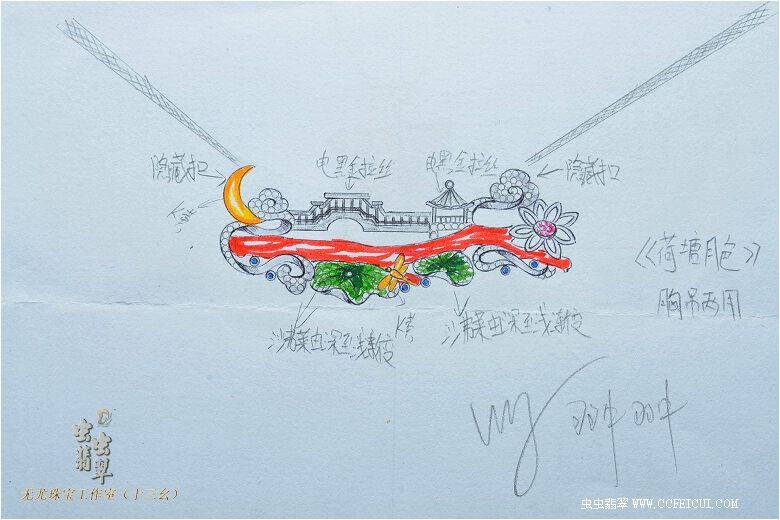 隐藏扣
电黑金拉丝
电黑金拉丝
隐藏扣
K黄
《荷塘月色》
胸吊两用
K黄
沙弗莱由深至浅渐变
沙弗莱由深至浅渐变
虫虫翡翠
无尤珠宝工作室（十三幺）
虫虫翡翠 WWW.CCFEICUI.COM